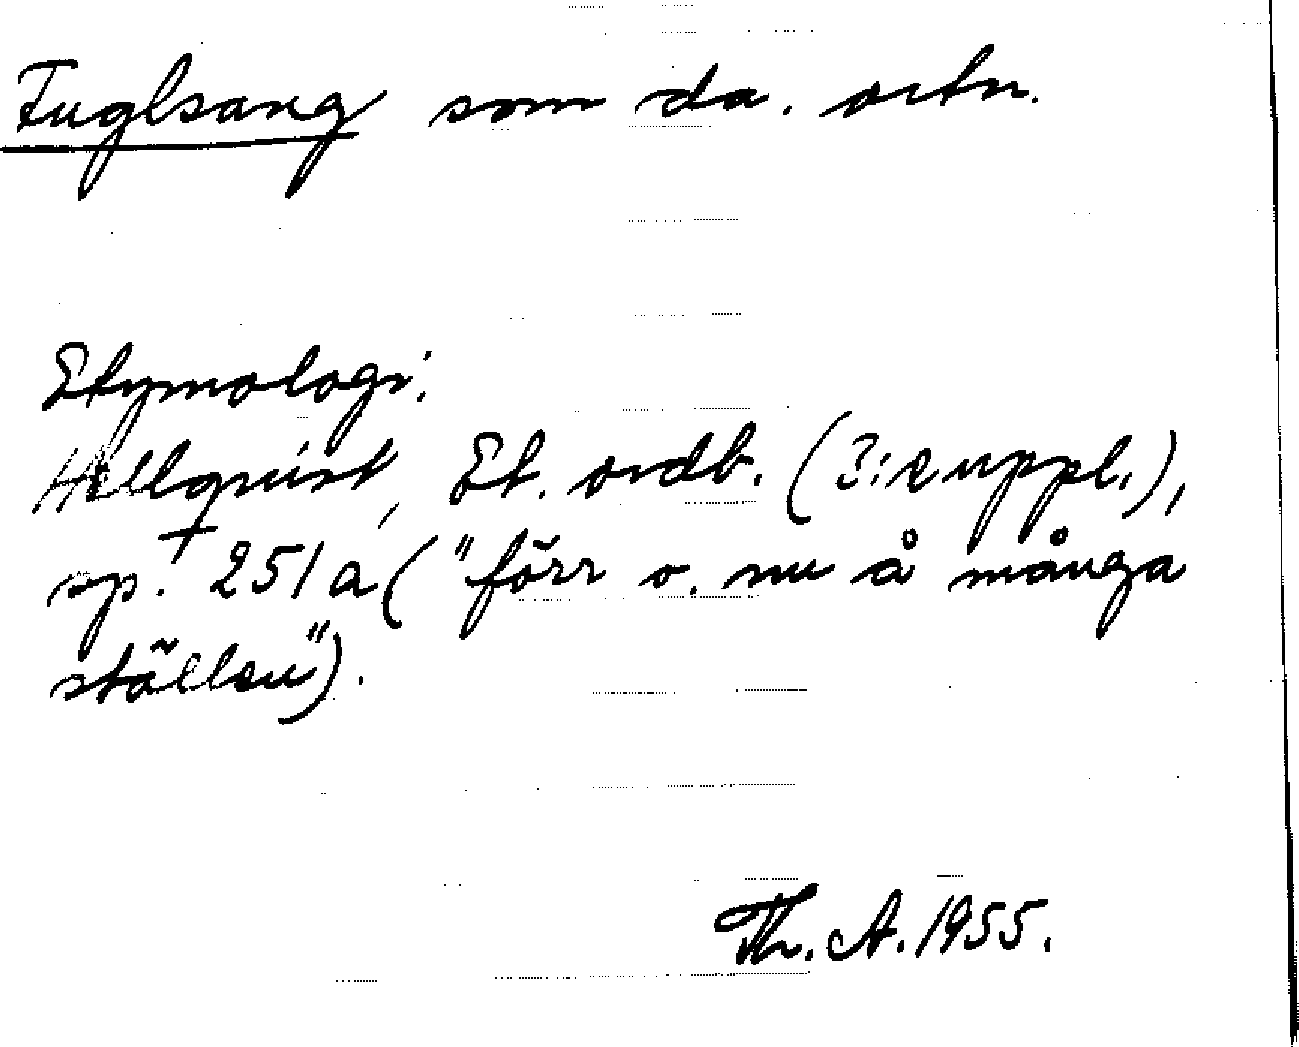 Fuglsang som da. ortn.
Etymologi:
Hellquist, Et. ordb. (3:e uppl.),
sp. 251 a ("förr o. nu å många
ställen").
Th. A. 1955.